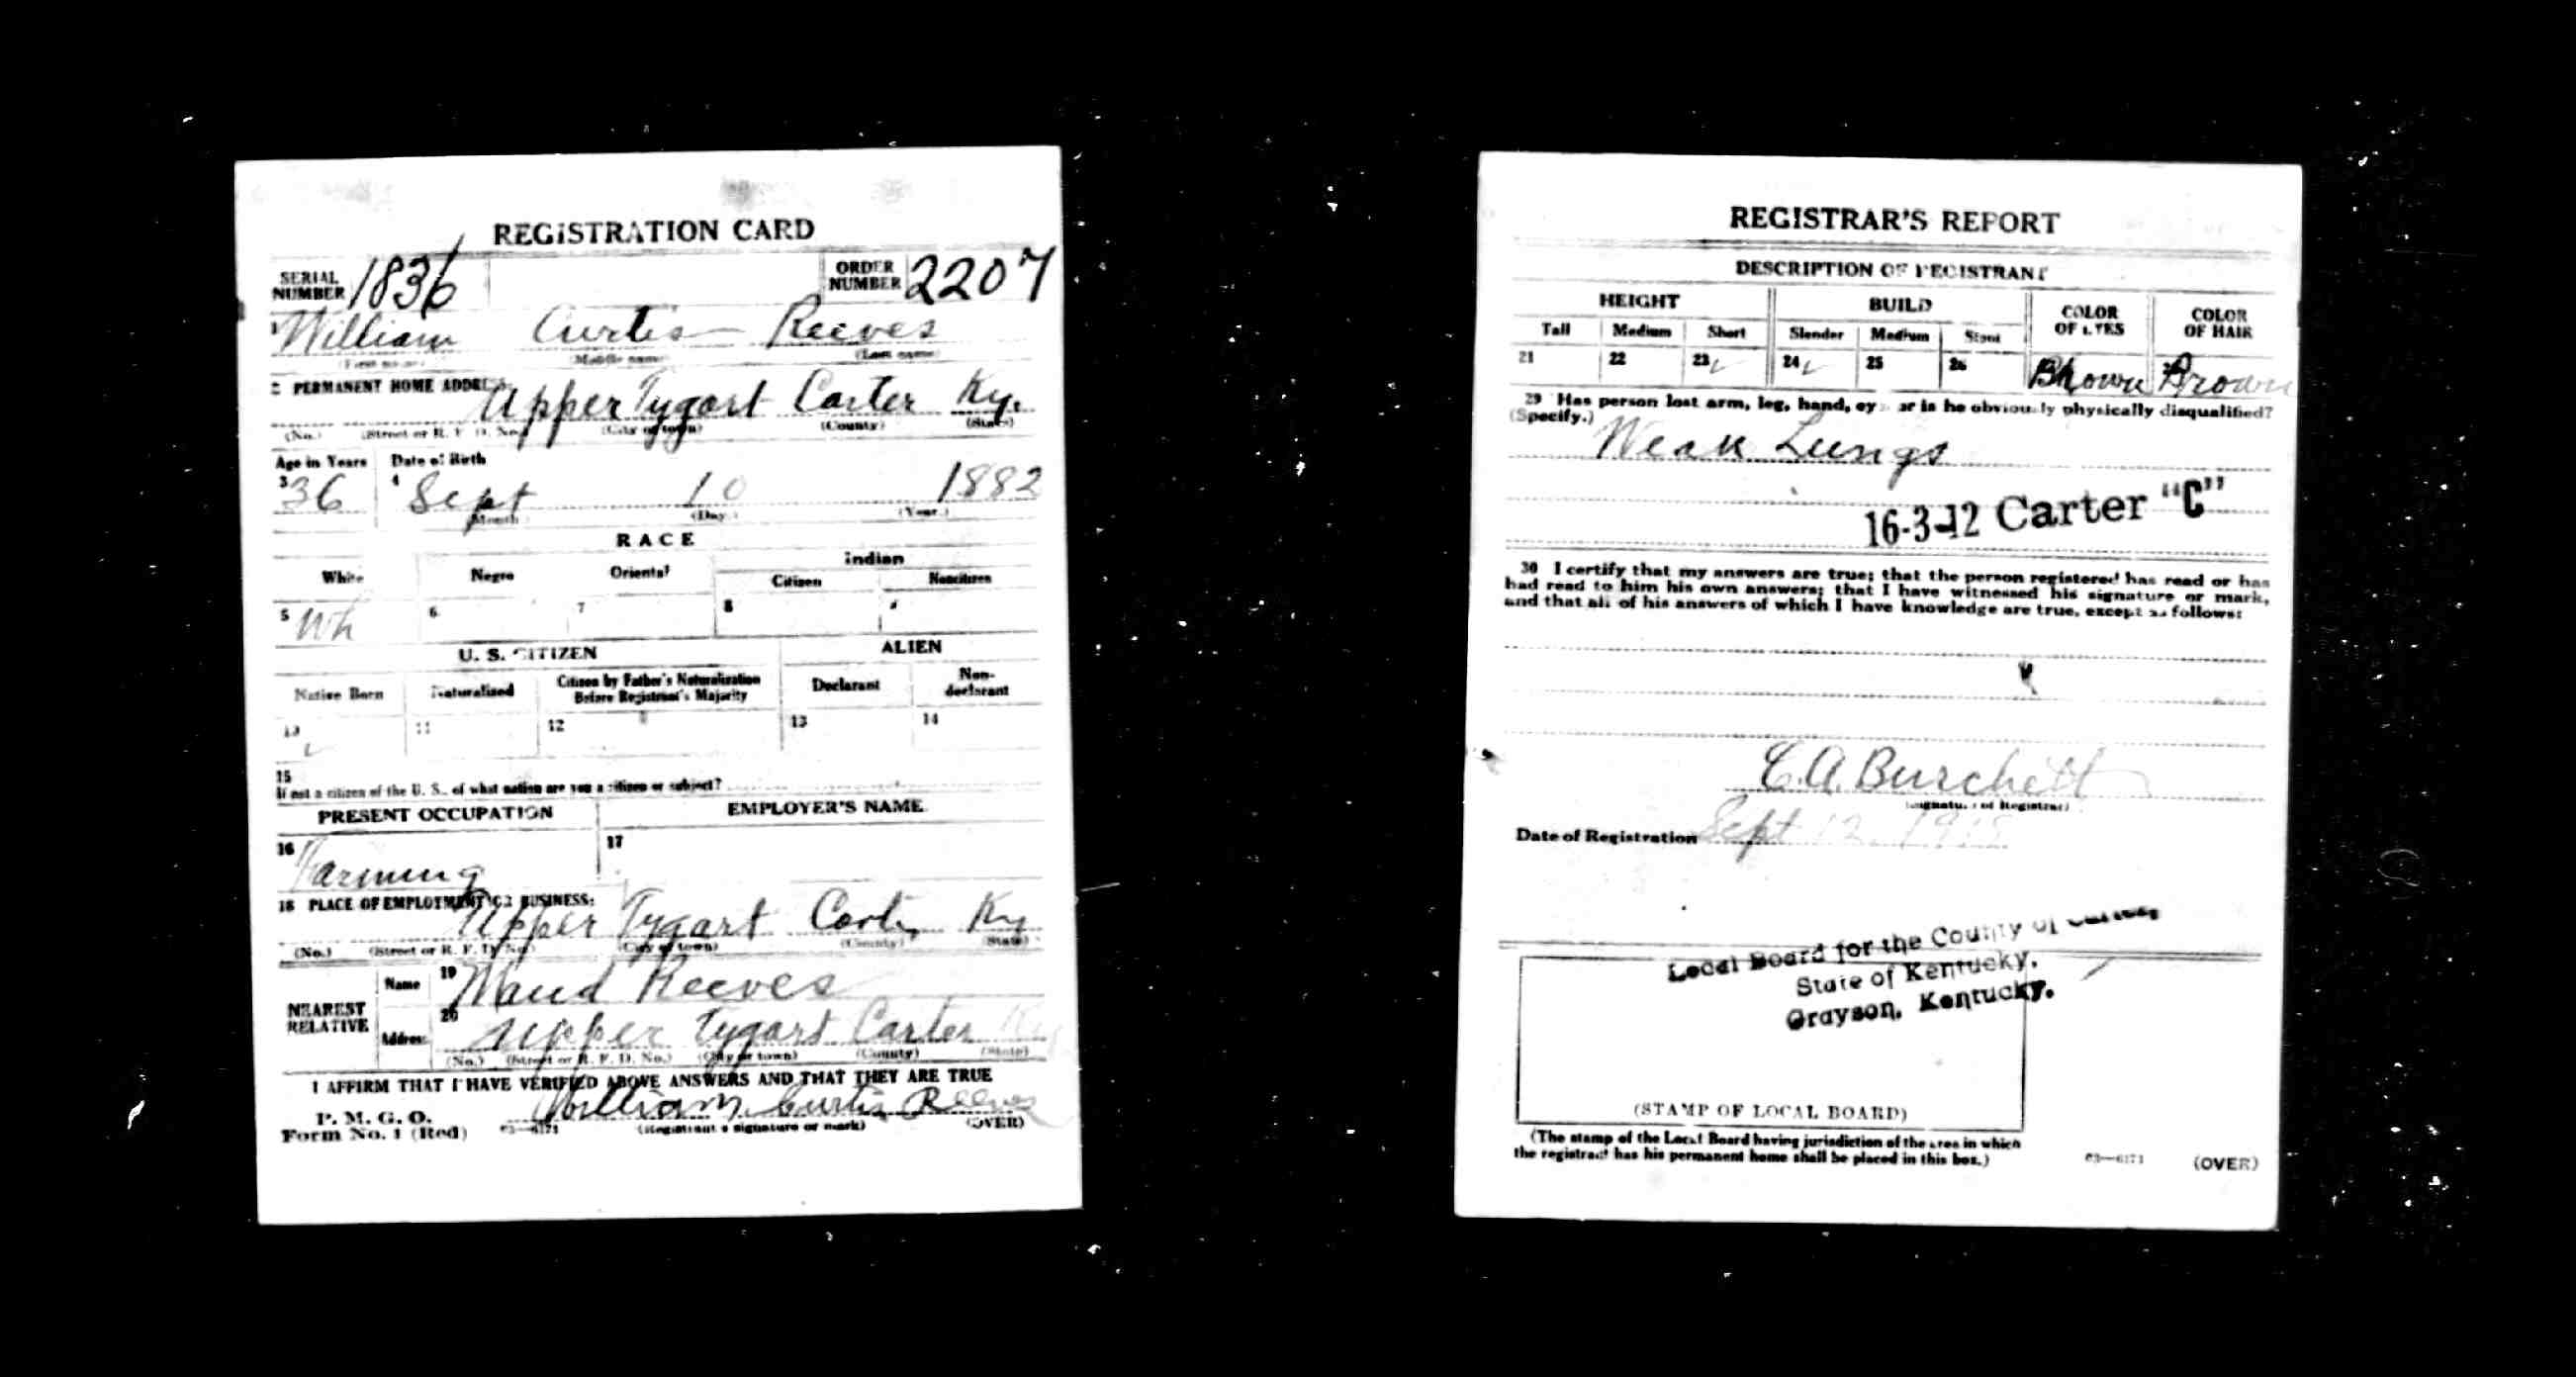 REGISTRATION CARD
SERIAL NUMBER 1836 ORDER NUMBER 2207
1 William Curtis Reeves
(First name) (Middle name) (Last name)
2 PERMANENT HOME ADDRESS:
Upper Tygart Carter Ky.
(No.) (Street or R. F. D. No.) (City or town) (County) (State)
Age in Years Date of Birth
3 36 4 Sept 10 1882
(Month) (Day.) (Year.)
RACE
White Negro Oriental Indian
Citizen Noncitizen
5 Wh 6 7 8
U. S. CITIZEN ALIEN
Native Born Naturalized Citizen by Father's Naturalization Before Registrant's Majority Declarant Non-declarant
10 ✓ 11 12 13 14
15
If not a citizen of the U. S., of what nation are you a citizen or subject?
PRESENT OCCUPATION EMPLOYER'S NAME
16 Farming 17
18 PLACE OF EMPLOYMENT OR BUSINESS:
Upper Tygart Carter Ky
(No.) (Street or R. F. D. No.) (City or town) (County) (State)
NEAREST RELATIVE
Name 19 Maud Reeves
Address 20 Upper Tygart Carter Ky
(No.) (Street or R. F. D. No.) (City or town) (County) (State)
I AFFIRM THAT I HAVE VERIFIED ABOVE ANSWERS AND THAT THEY ARE TRUE
P. M. G. O.
Form No. 1 (Red) 03—6171 William Curtis Reeves
(Registrant's signature or mark) (OVER)
REGISTRAR'S REPORT
DESCRIPTION OF REGISTRANT
HEIGHT BUILD COLOR OF EYES COLOR OF HAIR
Tall Medium Short Slender Medium Stout
21 22 23 ✓ 24 ✓ 25 26 Brown Brown
29 Has person lost arm, leg, hand, eye, or is he obviously physically disqualified?
(Specify.) Weak Lungs
16-3-12 Carter "C"
30 I certify that my answers are true; that the person registered has read or has
had read to him his own answers; that I have witnessed his signature or mark,
and that all of his answers of which I have knowledge are true, except as follows:
C. A. Burchett
(Signature of Registrar)
Date of Registration Sept 12 1918
Local Board for the County of Carter,
State of Kentucky,
Grayson, Kentucky.
(STAMP OF LOCAL BOARD)
(The stamp of the Local Board having jurisdiction of the area in which
the registrant has his permanent home shall be placed in this box.)
03—6171 (OVER)